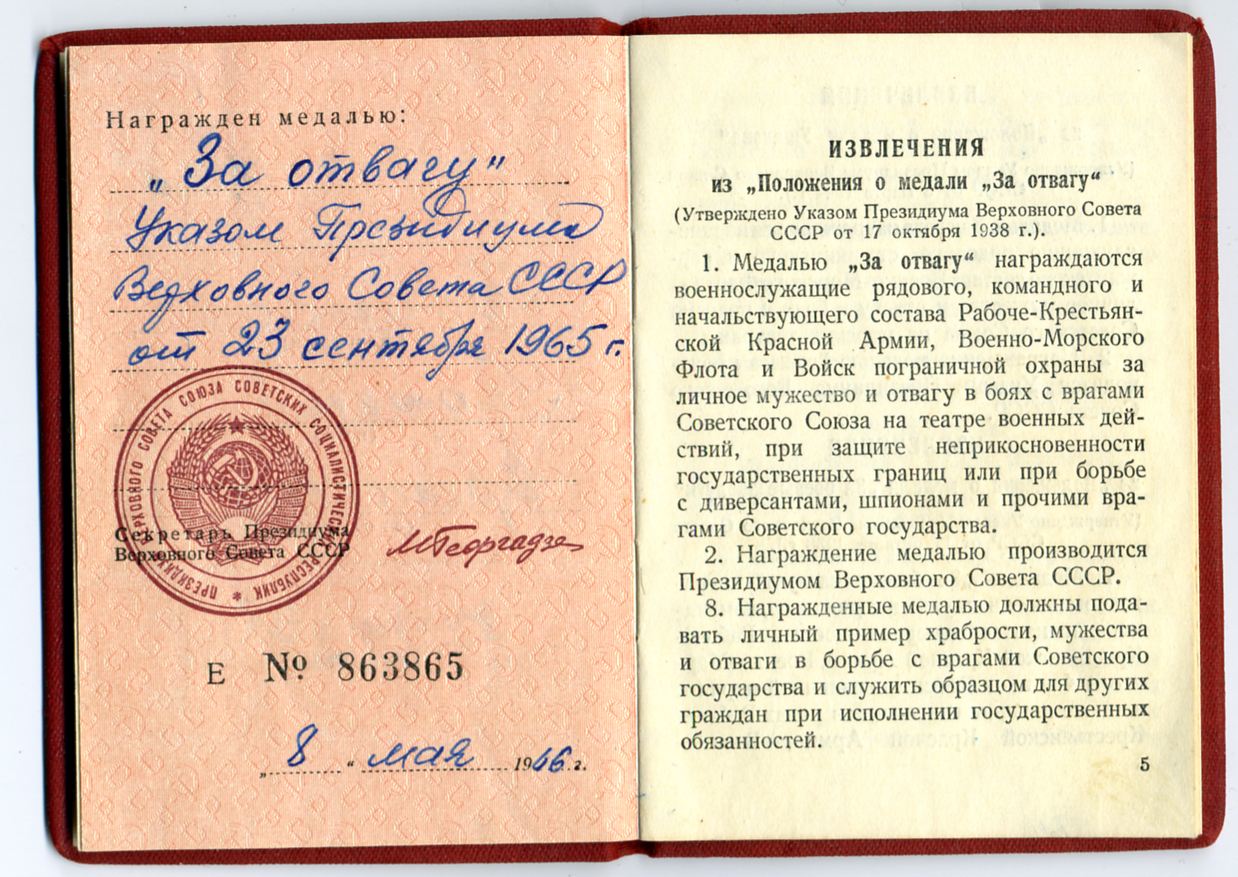 Награжден медалью:
„За отвагу"
Указом Президиума
Верховного Совета СССР
от 23 сентября 1965 г.
ПРЕЗИДИУМ ВЕРХОВНОГО СОВЕТА СОЮЗА СОВЕТСКИХ СОЦИАЛИСТИЧЕСКИХ РЕСПУБЛИК *
Секретарь Президиума
Верховного Совета СССР
МГеоргадзе
Е № 863865
„8" мая 1966 г.
ИЗВЛЕЧЕНИЯ
из „Положения о медали „За отвагу"
(Утверждено Указом Президиума Верховного Совета
СССР от 17 октября 1938 г.).
1. Медалью „За отвагу" награждаются
военнослужащие рядового, командного и
начальствующего состава Рабоче-Крестьян-
ской Красной Армии, Военно-Морского
Флота и Войск пограничной охраны за
личное мужество и отвагу в боях с врагами
Советского Союза на театре военных дей-
ствий, при защите неприкосновенности
государственных границ или при борьбе
с диверсантами, шпионами и прочими вра-
гами Советского государства.
2. Награждение медалью производится
Президиумом Верховного Совета СССР.
8. Награжденные медалью должны пода-
вать личный пример храбрости, мужества
и отваги в борьбе с врагами Советского
государства и служить образцом для других
граждан при исполнении государственных
обязанностей.
5